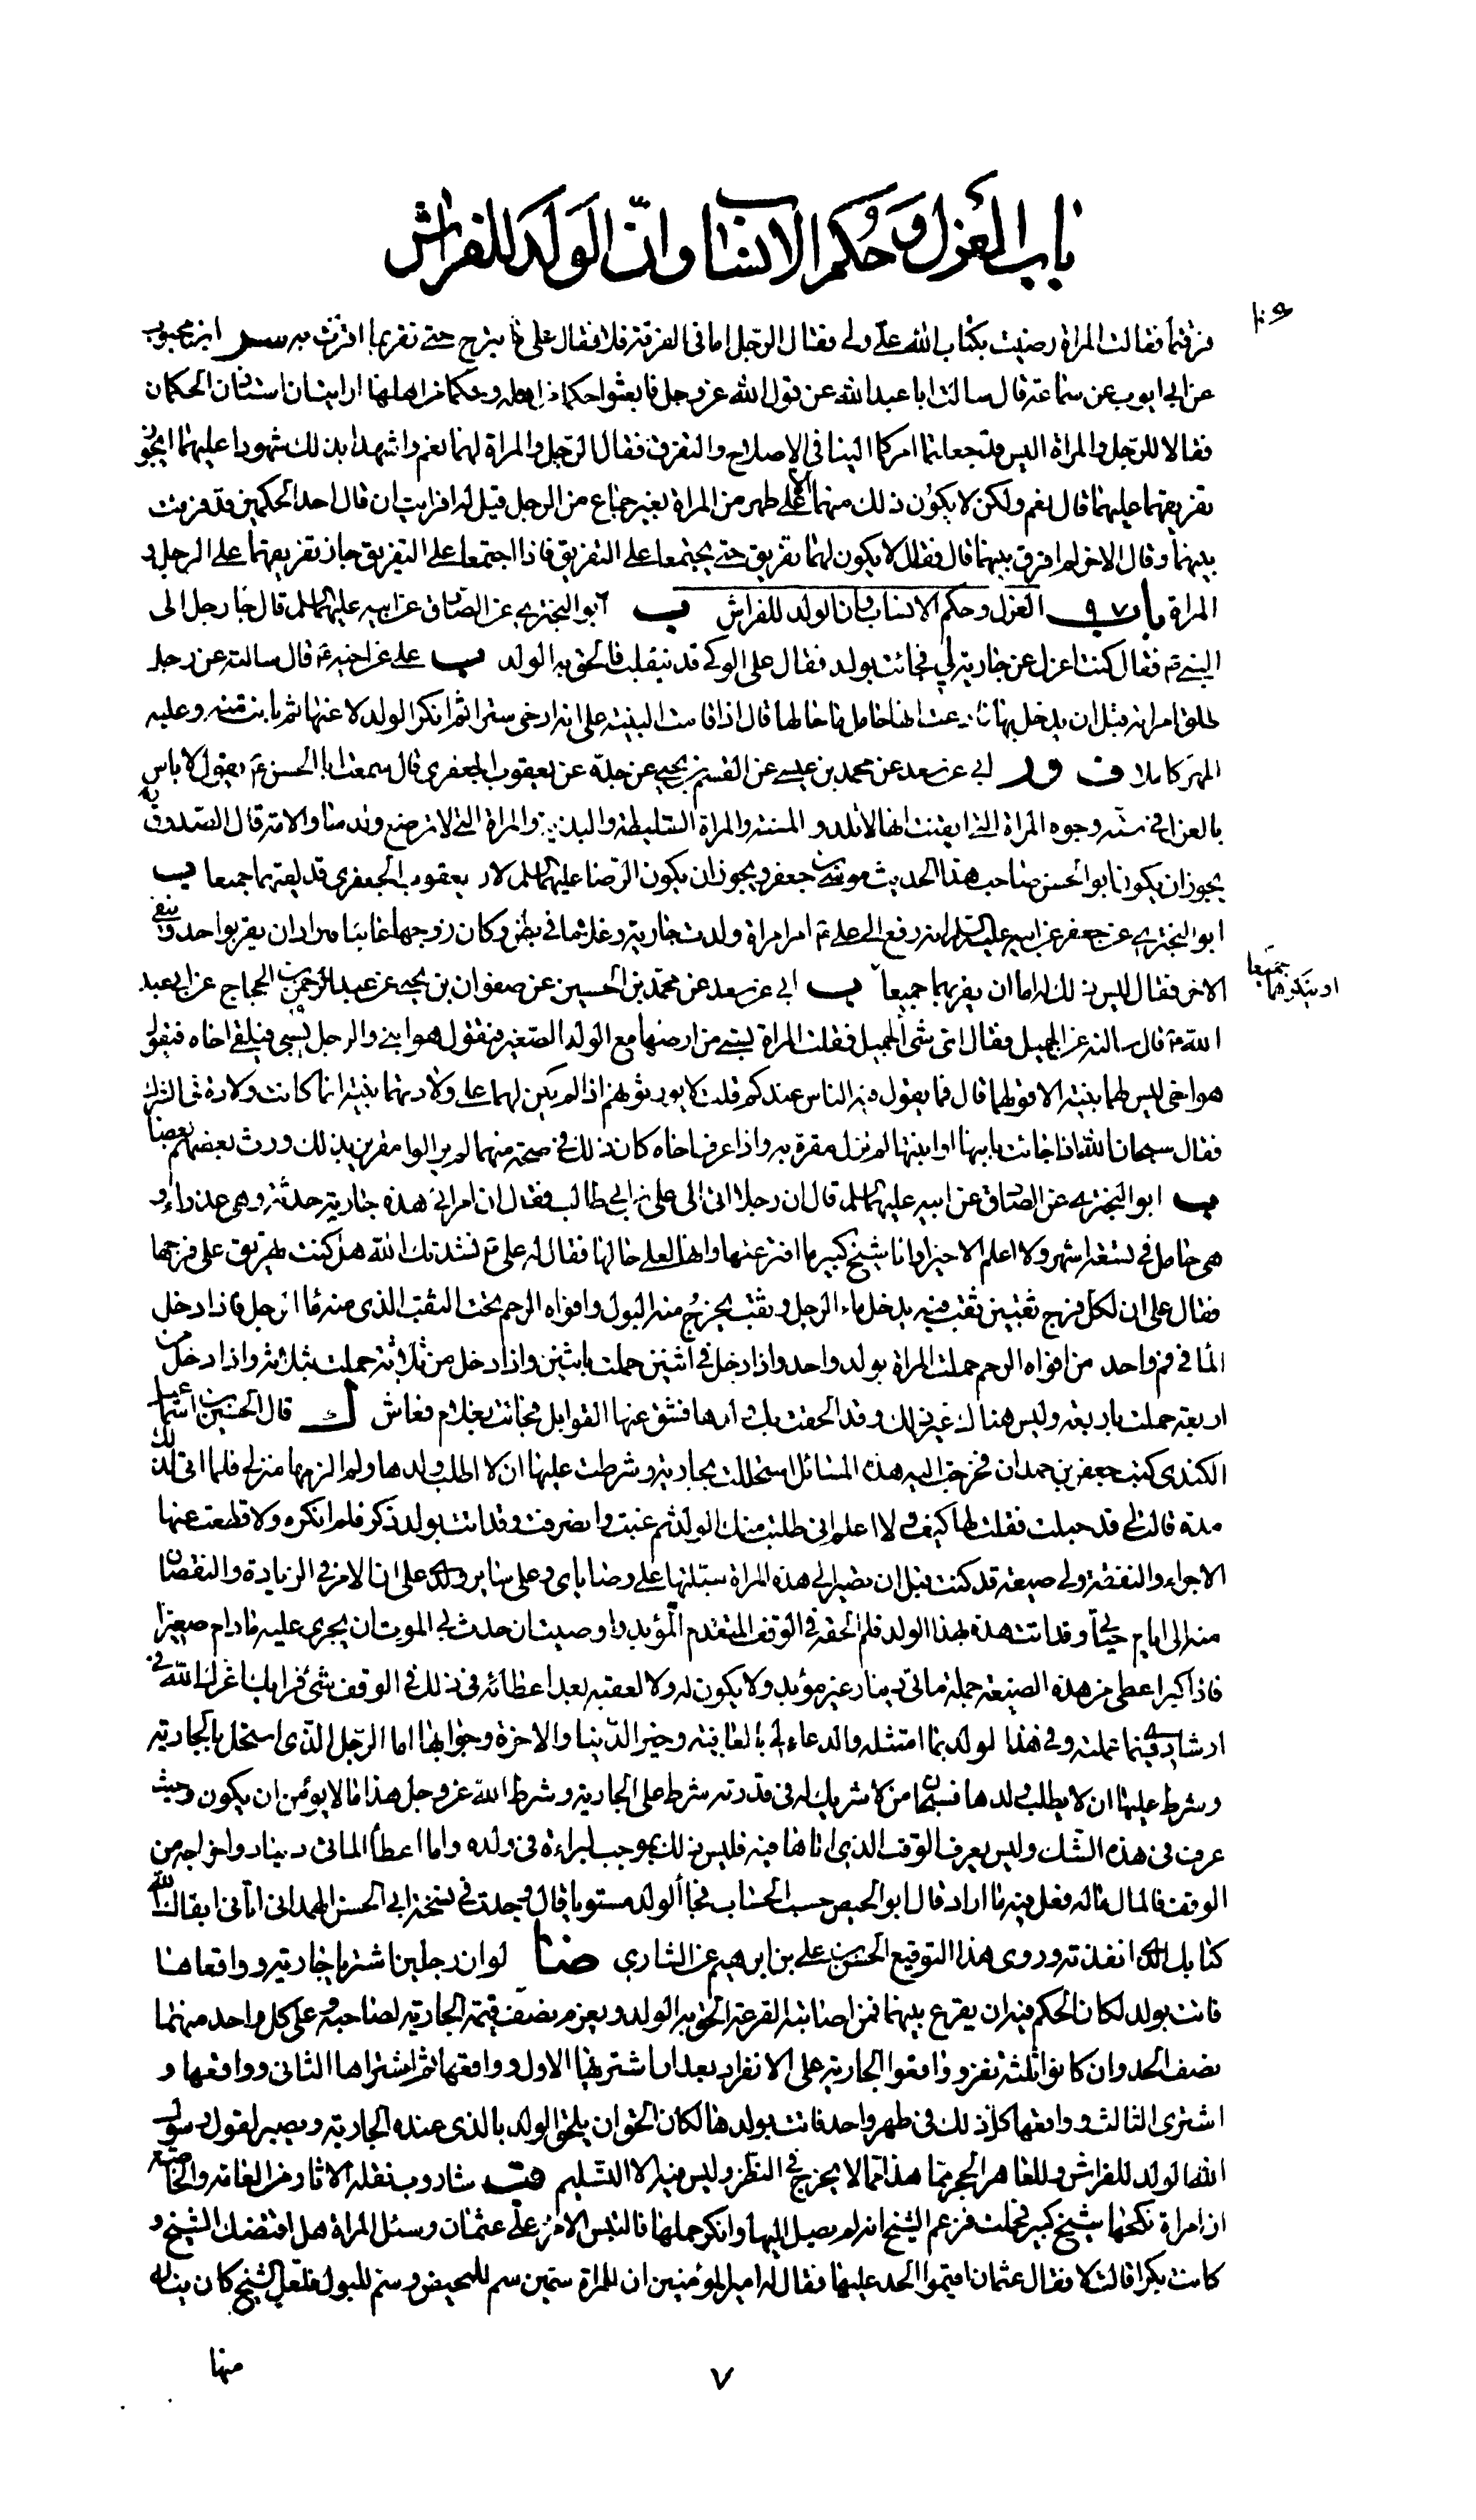 باب العزل وحكم الانساب وان الولد للفراش
فرقتما فقالت المراة رضيت بكتاب الله علي ولي فقال الرجل اما في الفرقة فلا فقال علي ما تبرح حتى تقر بما اقرت به ابن محبوب
عن ابي ايوب عن سماعة قال سالت ابا عبد الله عن قول الله عز وجل فابعثوا حكما من اهله وحكما من اهلها ارايت ان استاذن الحكمان
فقالا للرجل والمراة اليس قد جعلتما امركما الينا في الاصلاح والتفريق فقال الرجل والمراة نعم واشهدا بذلك شهودا عليهما ايجوز
تفريقهما عليهما قال نعم ولكن لا يكون ذلك منهما الا على طهر من المراة بغير جماع من الرجل قيل له افرايت ان قال احد الحكمين قد فرقت
بينهما وقال الاخر لم افرق بينهما قال فقال لا يكون لهما تفريق حتى يجتمعا على التفريق فاذا اجتمعا على التفريق جاز تفريقهما على الرجل و
المراة باب ٩٧ العزل وحكم الانساب وان الولد للفراش ب ابو البختري عن الصادق عن ابيه عليهما السلم قال جا رجل الى
النبي ص فقال كنت اعزل عن جارية لي فجائت بولد فقال علي الوكا قد ينفلت فالحق به الولد ب علي عن اخيه ع قال سالته عن رجل
طلق امراته قبل ان يدخل بها فادعت انها حامل ما حالها قال اذا قامت البينة على انه ارخى سترا ثم انكر الولد لاعنها ثم بانت منه وعليه
المهر كاملا ابي عن سعد عن محمد بن عيسى عن القسم بن يحيى عن جده عن يعقوب الجعفري قال سمعت ابا الحسن ع يقول لا باس
بالعزل في ستة وجوه المراة التي ايقنت انها لا تلد والمسنة والمراة السليطة والبذية والمراة التي لا ترضع ولدها والامة قال الصدوق ره
يجوز ان يكون ابو الحسن صاحب هذا الحديث موسى بن جعفر ويجوز ان يكون الرضا عليهما السلم لان يعقوب الجعفري قد لقيهما جميعا ب
ابو البختري عن جعفر عن ابيه عليه السلم انه رفع الى علي ع امر امراة ولدت جارية وغلاما في بطن وكان زوجها غائبا فاراد ان يقر بواحد وينفي
الاخر فقال ليس ذلك له اما ان يقر بهما جميعا ب ابي عن سعد عن محمد بن الحسين عن صفوان بن يحيى عن عبد الرحمن بن الحجاج عن ابي عبد
او ينكرهما جميعا
الله ع قال سالته عن الحميل فقال اي شئ الحميل فقلت المراة تسبى من ارضها مع الولد الصغير فتقول هو ابني والرجل يسبى فيلقى اخاه فيقول
هو اخي ليس لهما بينة الا قولهما قال فما يقول فيه الناس عندكم قلت لا يورثونهم اذا لم يكن لهما على ولادتهما بينة انما كانت ولادة في الشرك
فقال سبحان الله اذا جائت بابنها او ابنتها لم تزل مقرة به واذا عرف اخاه كان ذلك في صحة منهما لم يزالوا مقرين بذلك ورث بعضهم بعضا
ب ابو البختري عن الصادق عن ابيه عليهما السلم قال ان رجلا اتى الى علي بن ابي طالب فقال ان امراتي هذه جارية حدثة وهي عذراء و
هي حامل في تسعة اشهر ولا اعلم الا خيرا وانا شيخ كبير ما افترعتها وانها لعلى حالها فقال له علي ع نشدتك الله هل كنت تهريق على فرجها
فقال علي ان لكل فرج ثقبين ثقب فيه يدخل ماء الرجل وثقب يخرج منه البول وافواه الرحم تحت الثقب الذي منه ماء الرجل فاذا دخل
الما في فم واحد من افواه الرحم حملت المراة بولد واحد واذا دخل في اثنين حملت باثنين واذا دخل من ثلاثة حملت بثلاثة واذا دخل من
اربعة حملت باربعة وليس هناك غير ذلك وقد الحقت بك ولدها فشق عنها القوابل فجائت بغلام فعاش ك قال الحسين بن اسماعيل
الكندي كتب جعفر بن حمدان فخرجت اليه هذه المسائل استحللت بجارية وشرطت عليها ان لا اطلب ولدها ولم الزمها منزلي فلما اتى لذلك
مدة قالت لي قد حبلت فقلت لها كيف ولا اعلم اني طلبت منك الولد ثم غبت وانصرفت وقد اتت بولد ذكر فلم انكره ولا قطعت عنها
الاجراء والنفقة ولي ضيعة قد كنت قبل ان تصير الي هذه المراة سبلتها على وصاياي وعلى سائر ولدي على ان الامر في الزيادة والنقصان
منه الى ايام حياتي وقد اتت هذه بهذا الولد فلم الحقه في الوقف المتقدم المؤبد واوصيت ان حدث بي الموت ان يجري عليه ما دام صغيرا
فاذا كبر اعطى من هذه الضيعة جملة مائتي دينار غير مؤبد ولا يكون له ولا لعقبه بعد اعطائه ذلك في الوقف شئ فرايك اعزك الله في
ارشادي فيما عملته وفي هذا الولد بما امتثله والدعاء لي بالعافية وخير الدنيا والاخرة وجوابها اما الرجل الذي استحل بالجارية
وشرط عليها ان لا يطلب ولدها فسبحان من لا شريك له في قدرته شرط على الجارية وشرط الله عز وجل هذا ما لا يؤمن ان يكون وحيث
عرف في هذه الشك وليس يعرف الوقت الذي اتاها فيه فليس ذلك بموجب لبراءة في ولده واما اعطا المائتي دينار واخراجه من
الوقف فالمال ماله فعل فيه ما اراد قال ابو الحسين حسب الحساب فجا الولد مستويا قال وجدت في نسخة ابي الحسن الهمداني اتاني ابقاك الله
كتابك الذي انفذته وروى هذا التوقيع الحسن بن علي بن ابرهيم عن الشاري ضا لو ان رجلين اشتريا جارية وواقعاها
فاتت بولد لكان الحكم فيه ان يقرع بينهما فمن اصابته القرعة الحق به الولد ويغرم نصف قيمة الجارية لصاحبه وعلى كل واحد منهما
نصف الحد وان كانوا ثلثة نفر وواقعوا الجارية على الانفراد بعد ان اشتريها الاول وواقعها ثم اشتراها الثاني وواقعها و
اشترى الثالث وواقعها كل ذلك في طهر واحد فاتت بولد هنا لكان الحق ان يلحق الولد بالذي عنده الجارية ويصير لقول رسول
الله الولد للفراش وللعاهر الحجر مما هذا مما لا يخرج في النظر وليس فيه الا التسليم شا روي نقله الاثار من العامة والخاصة
ان امراة نكحها شيخ كبير فحملت فزعم الشيخ انه لم يصل اليها وانكر حملها فالتبس الامر على عثمان وسئل المراة هل افتضك الشيخ و
كانت بكرا قالت لا فقال عثمان اقيموا الحد عليها فقال له امير المؤمنين ان للمراة سمين سم للمحيض وسم للبول فلعل الشيخ كان ينال
منها
٧